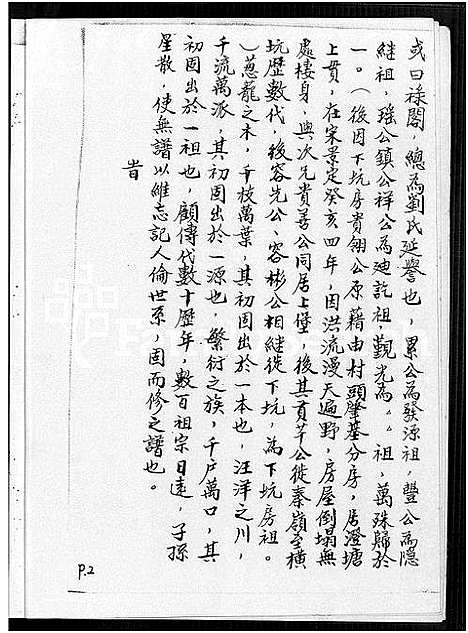 或曰祿閣，總為劉氏延譽也，累公為發源祖，豐公為隱
繼祖，瑤公鎮公祥公為廸訖祖，觀光為〃〃祖，萬殊歸於
一。（後因下坑房貴翎公原藉由村頭肇基分房，居澄塘
上貫，在宋景定癸亥四年，因洪流漫天遍野，房屋倒塌無
處棲身，與次兄貴善公同居上堡，後其貢芊公徙秦嶺至橫
坑歷數代，後容先公、容彬公相繼徙下坑，為下坑房祖。
）蔥蘢之木，千枝萬葉，其初固出於一本也，汪洋之川，
千流萬派，其初固出於一源也，繁衍之族，千戶萬口，其
初固出於一祖也，顧傳代數十歷年，數百祖宗日遠，子孫
星散，使無譜以維志記人倫世系，固而修之譜也。
旹
P.2